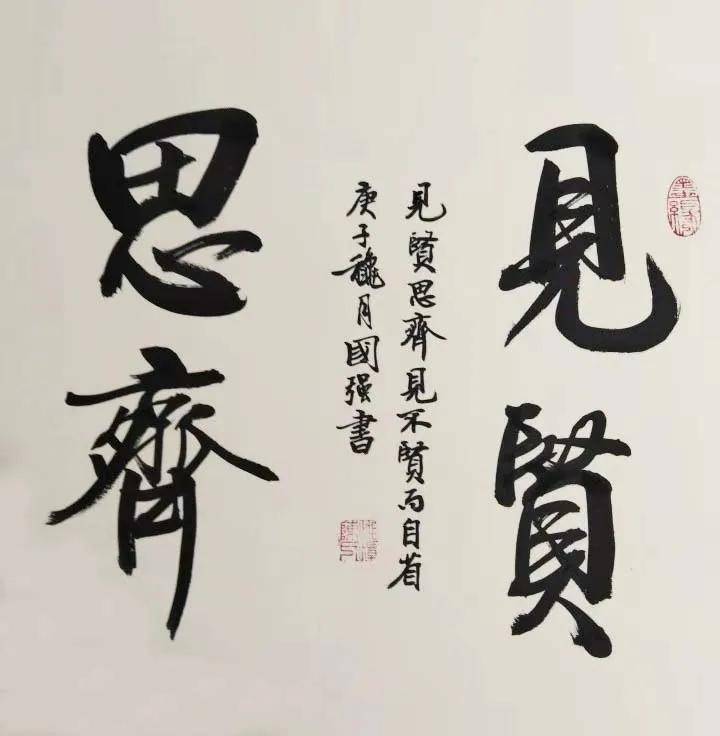 見賢
思齊
見賢思齊見不賢而自省
庚子穐月國强書